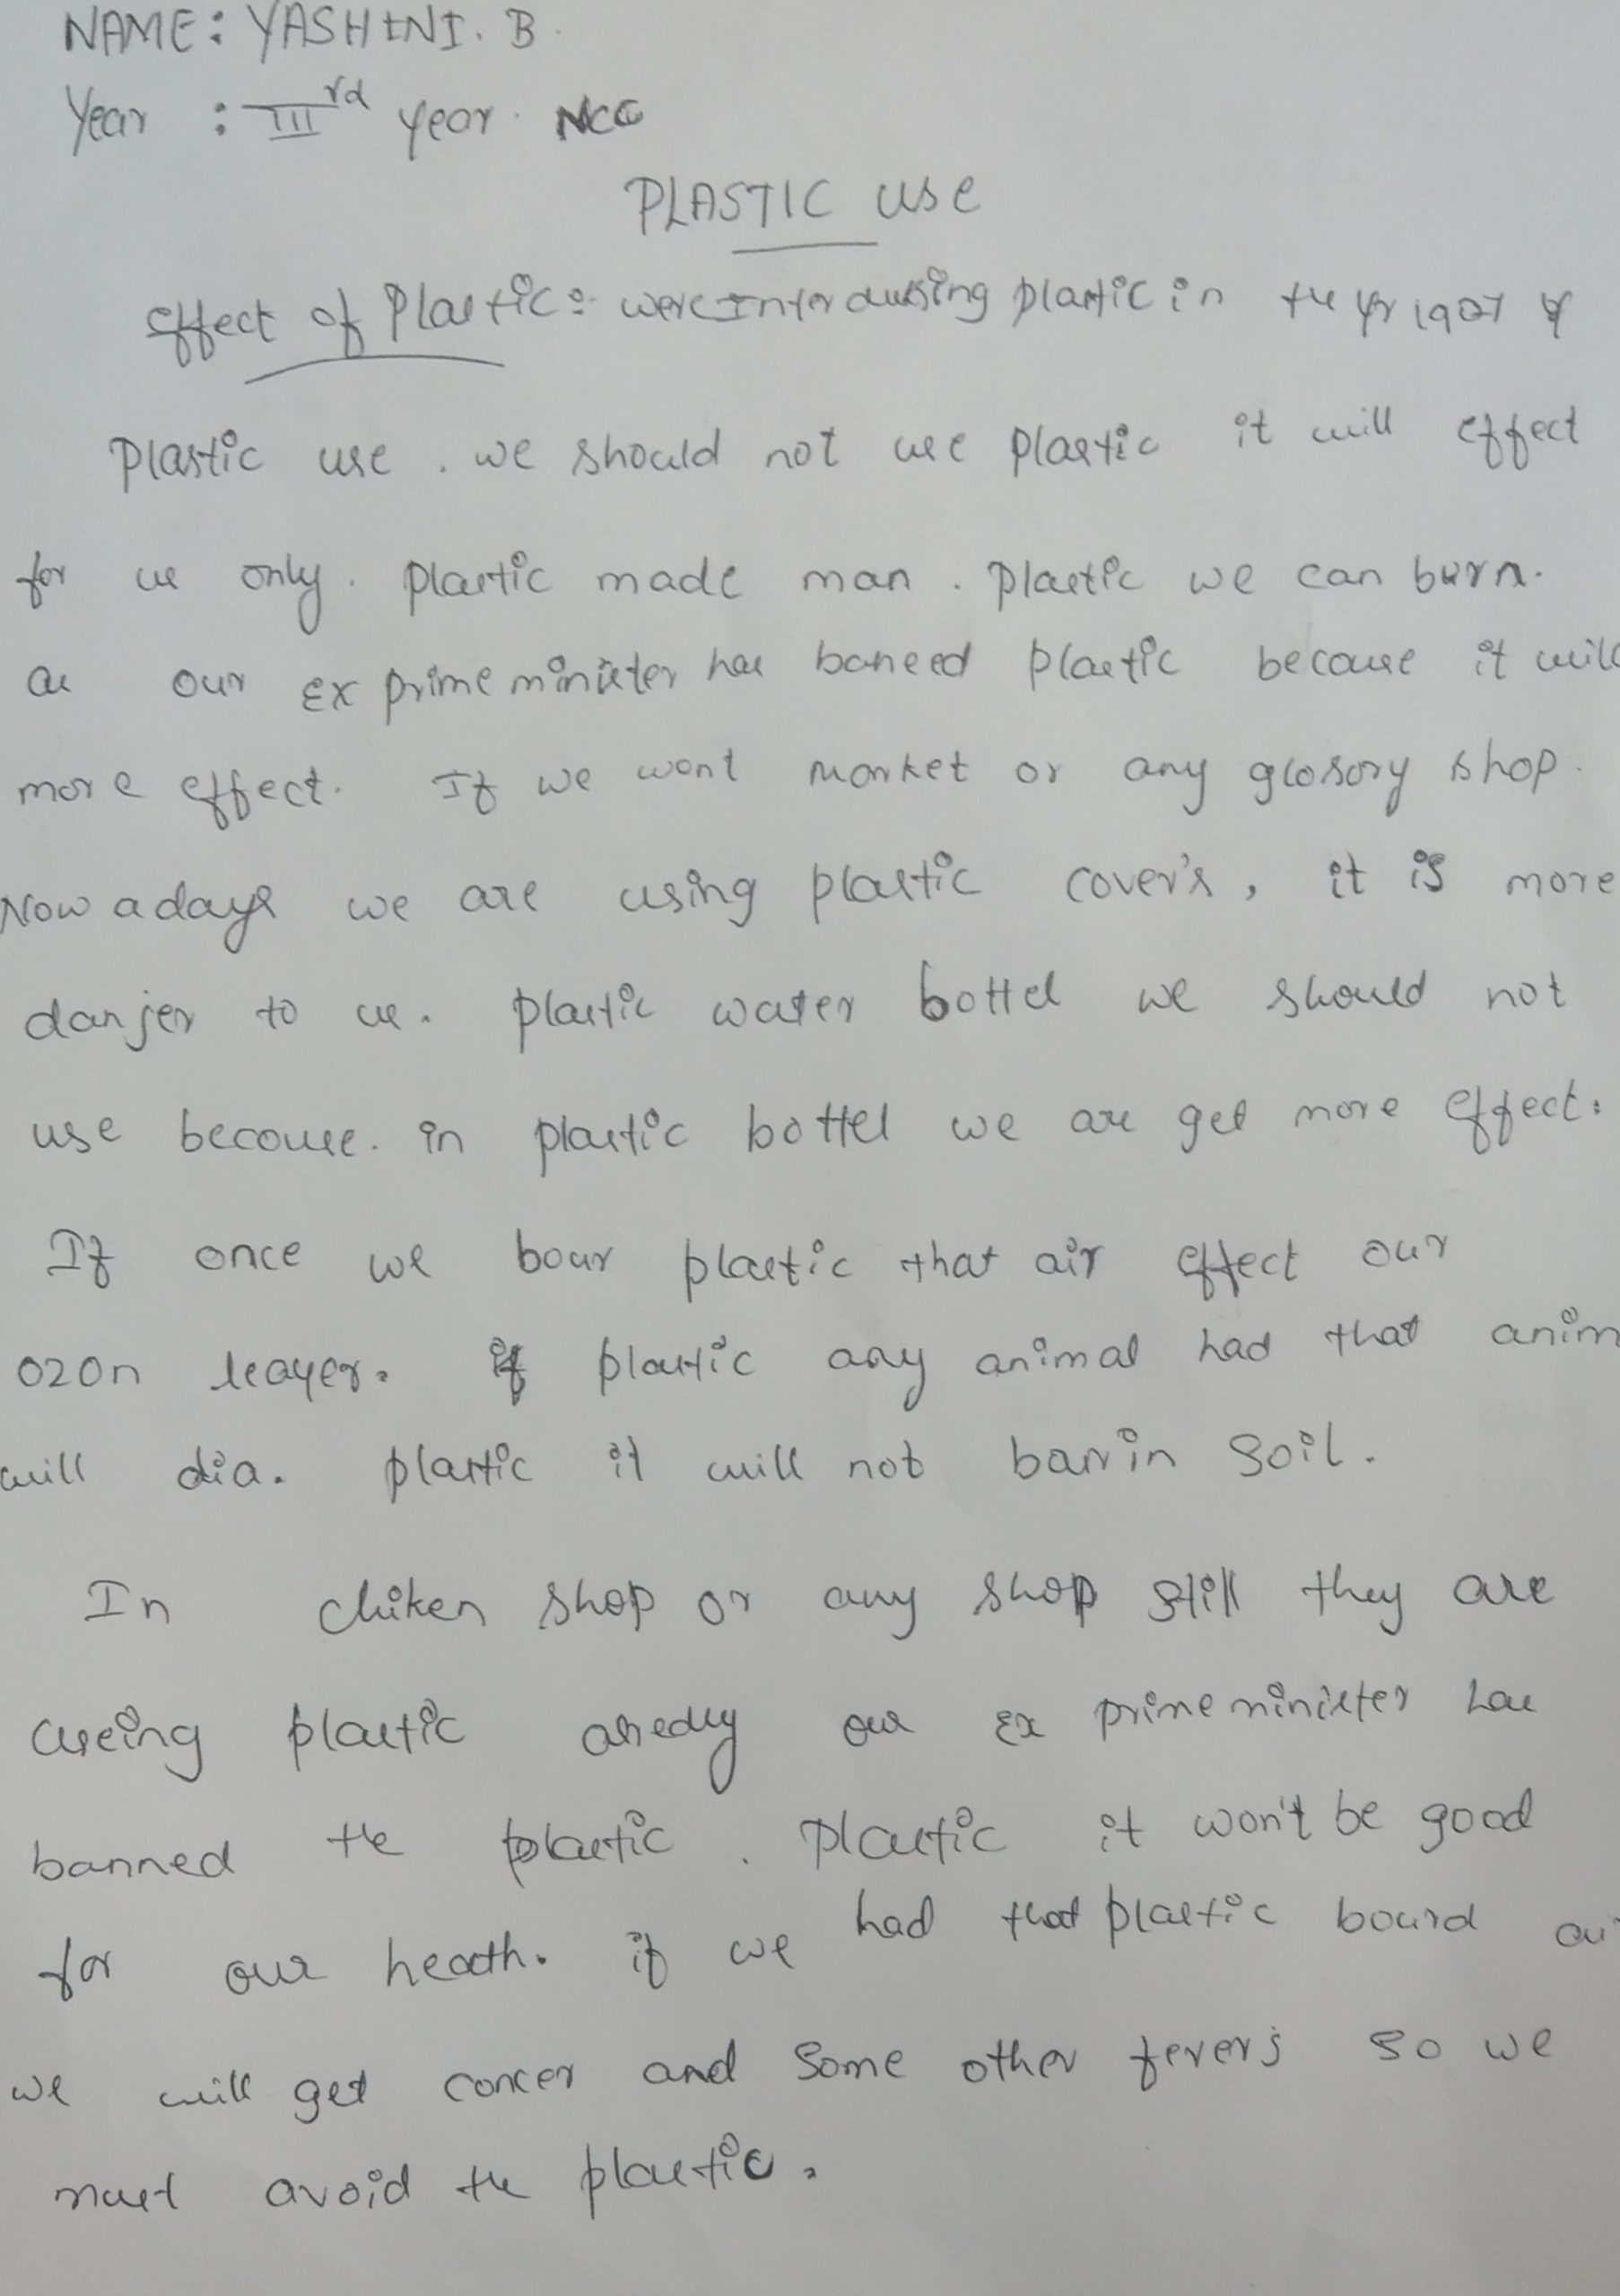 NAME: YASHINI. B.
Year : IIIrd year. NCC
PLASTIC USE
Effect of Plastic: were Interdusing plastic in the yr 1907 of
Plastic use. we should not use plastic it will effect
for us only. plastic made man. plastic we can burn.
as our Ex prime minister has baneed plastic because it will
more effect. If we went market or any glosory shop.
Now a days we are using plastic cover's, it is more
danjer to us. plastic water bottel we should not
use because. in plastic bottel we are get more effect.
If once we bour plastic that air effect our
ozon leayer. if plastic any animal had that anim
will dia. plastic it will not barrin soil.
In chiken shop or any shop still they are
useing plastic aredly our Ex prime minister has
banned the plastic. Plastic it won't be good
for our heath. if we had that plastic bourd
we will get concer and some other fevers so we
must avoid the plastic.